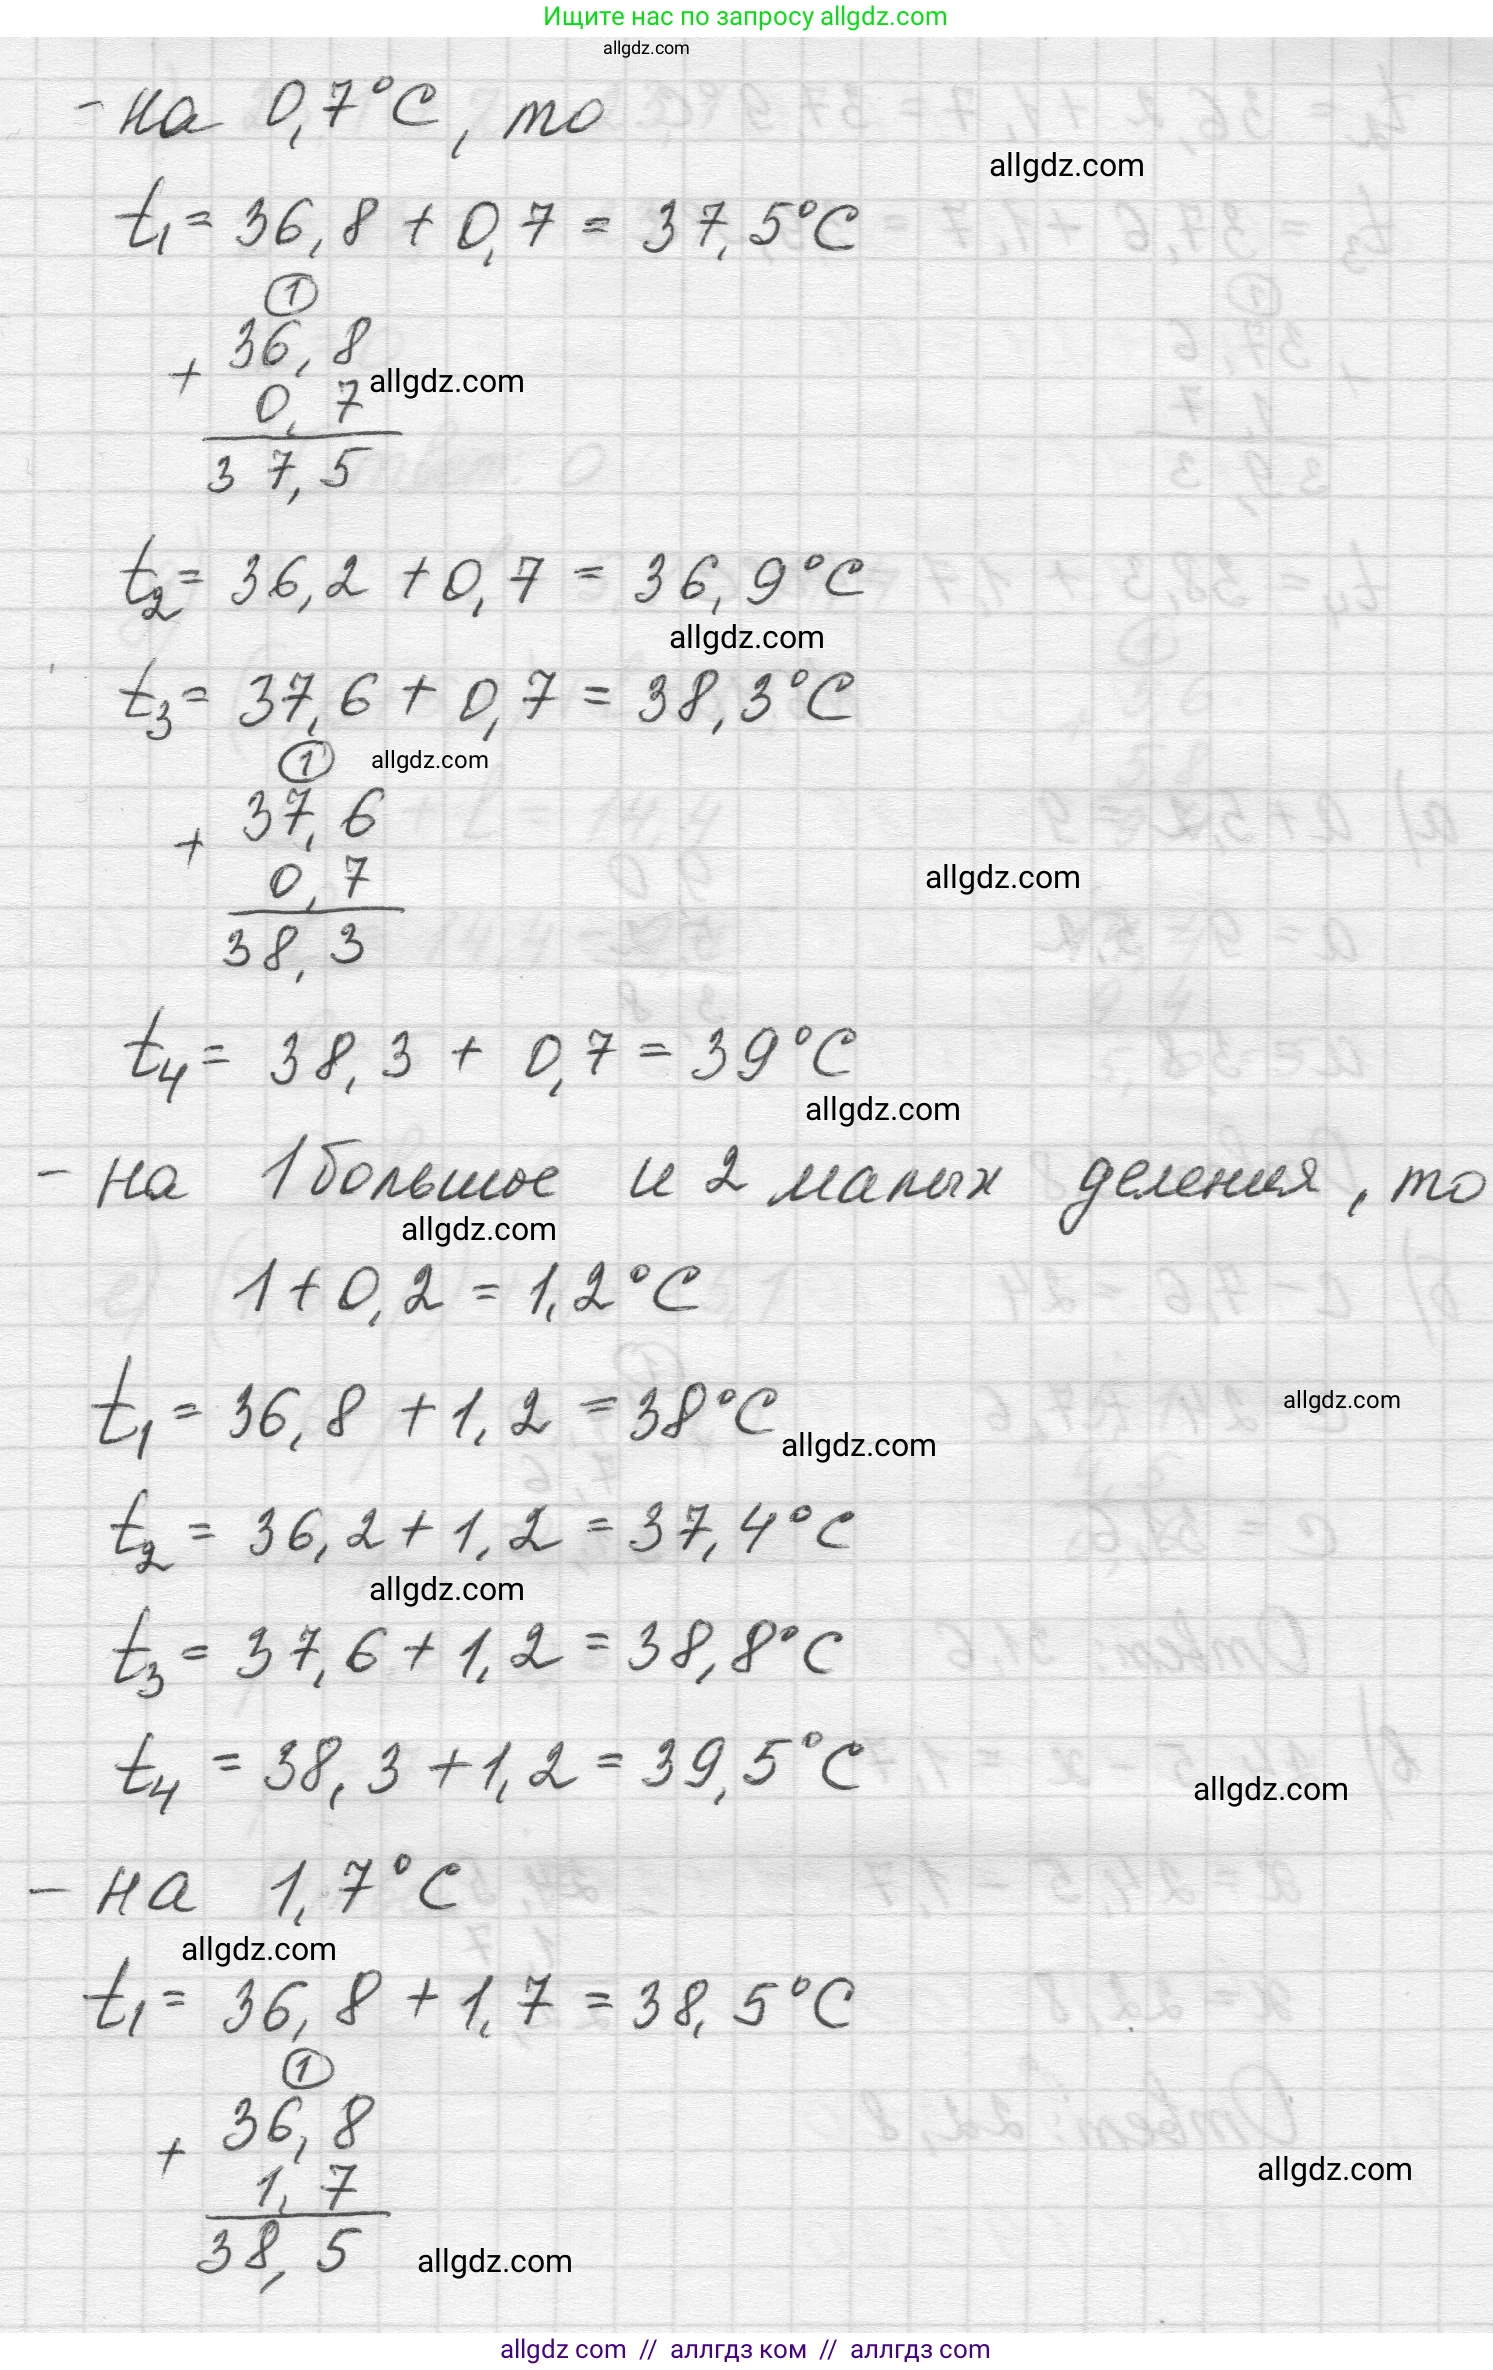 Ищите нас по запросу allgdz.com
allgdz.com
- на 0,7°C, то
allgdz.com
t₁ = 36,8 + 0,7 = 37,5°C
①
36,8
+
allgdz.com
0,7
37,5
t₂ = 36,2 + 0,7 = 36,9°C
allgdz.com
t₃ = 37,6 + 0,7 = 38,3°C
① allgdz.com
37,6
+
0,7
allgdz.com
38,3
t₄ = 38,3 + 0,7 = 39°C
allgdz.com
- на 1 большое и 2 малых деления, то
allgdz.com
1 + 0,2 = 1,2°C
t₁ = 36,8 + 1,2 = 38°C
allgdz.com
allgdz.com
t₂ = 36,2 + 1,2 = 37,4°C
allgdz.com
t₃ = 37,6 + 1,2 = 38,8°C
t₄ = 38,3 + 1,2 = 39,5°C
allgdz.com
- на 1,7°C
allgdz.com
t₁ = 36,8 + 1,7 = 38,5°C
①
36,8
+
1,7
allgdz.com
38,5
allgdz.com
allgdz com // аллгдз ком // аллгдз com